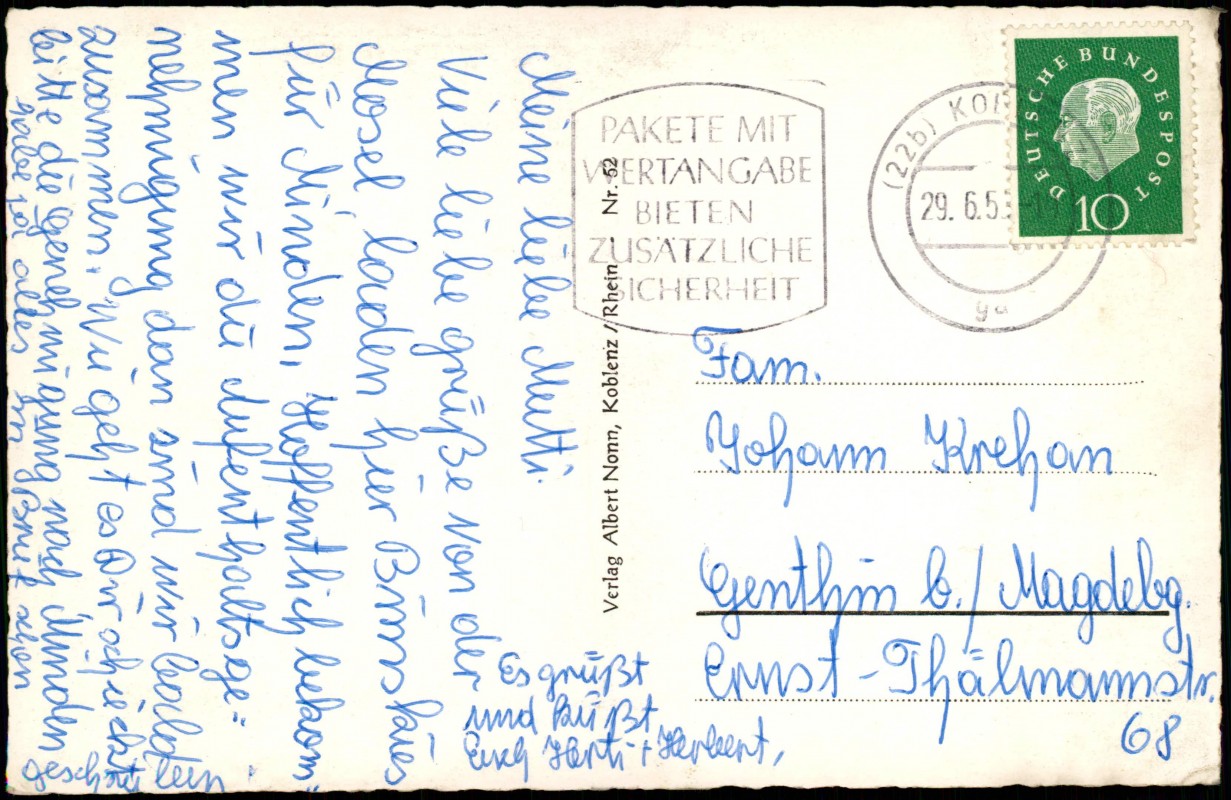 Meine liebe Mutti.
Viele liebe grüße von der
Mosel, laden hier Bimskies
für Minden, Hoffentlich bekom=
men wir die Aufenthaltsge=
nehmigung dan sind wir bald
zusammen. Wie geht es Dir
bitte die genehmigung nach Minden
habe ja alles im Brief schon
geschrieben.
Es grüßt
und küßt
Euch Herti + Herbert,
Verlag Albert Nonn, Koblenz/Rhein Nr. 52
PAKETE MIT
WERTANGABE
BIETEN
ZUSÄTZLICHE
SICHERHEIT
(22b) KO
29. 6.5
ya
DEUTSCHE BUNDESPOST
10
Fam.
Johann Krehan
Genthin b./Magdebg.
Ernst-Thälmannstr.
68